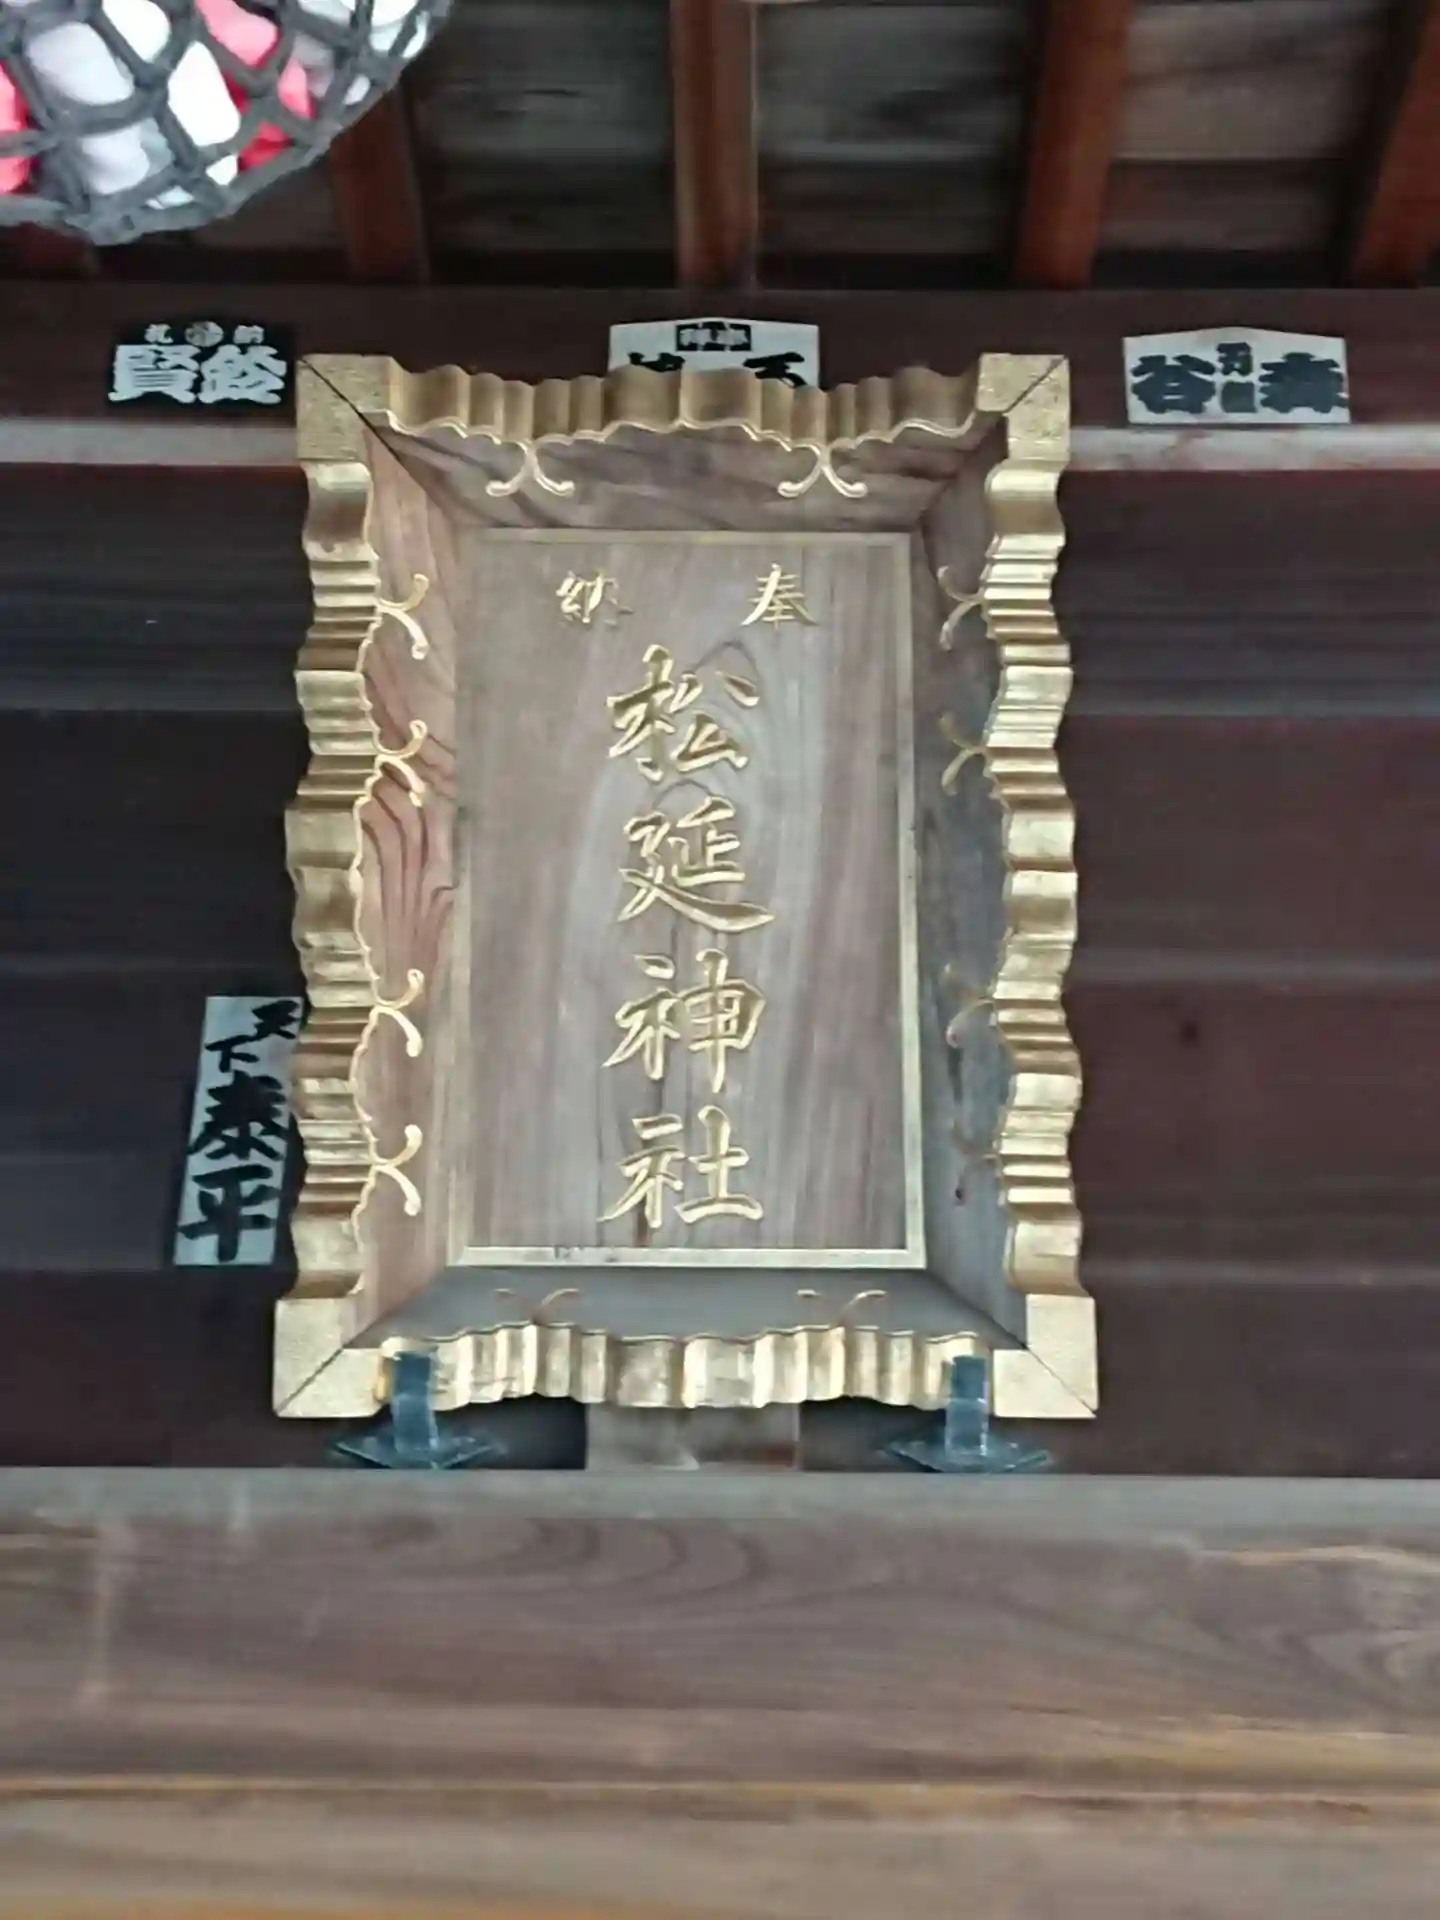 奉納
松延神社
天下泰平
納札
鈴賢
森谷